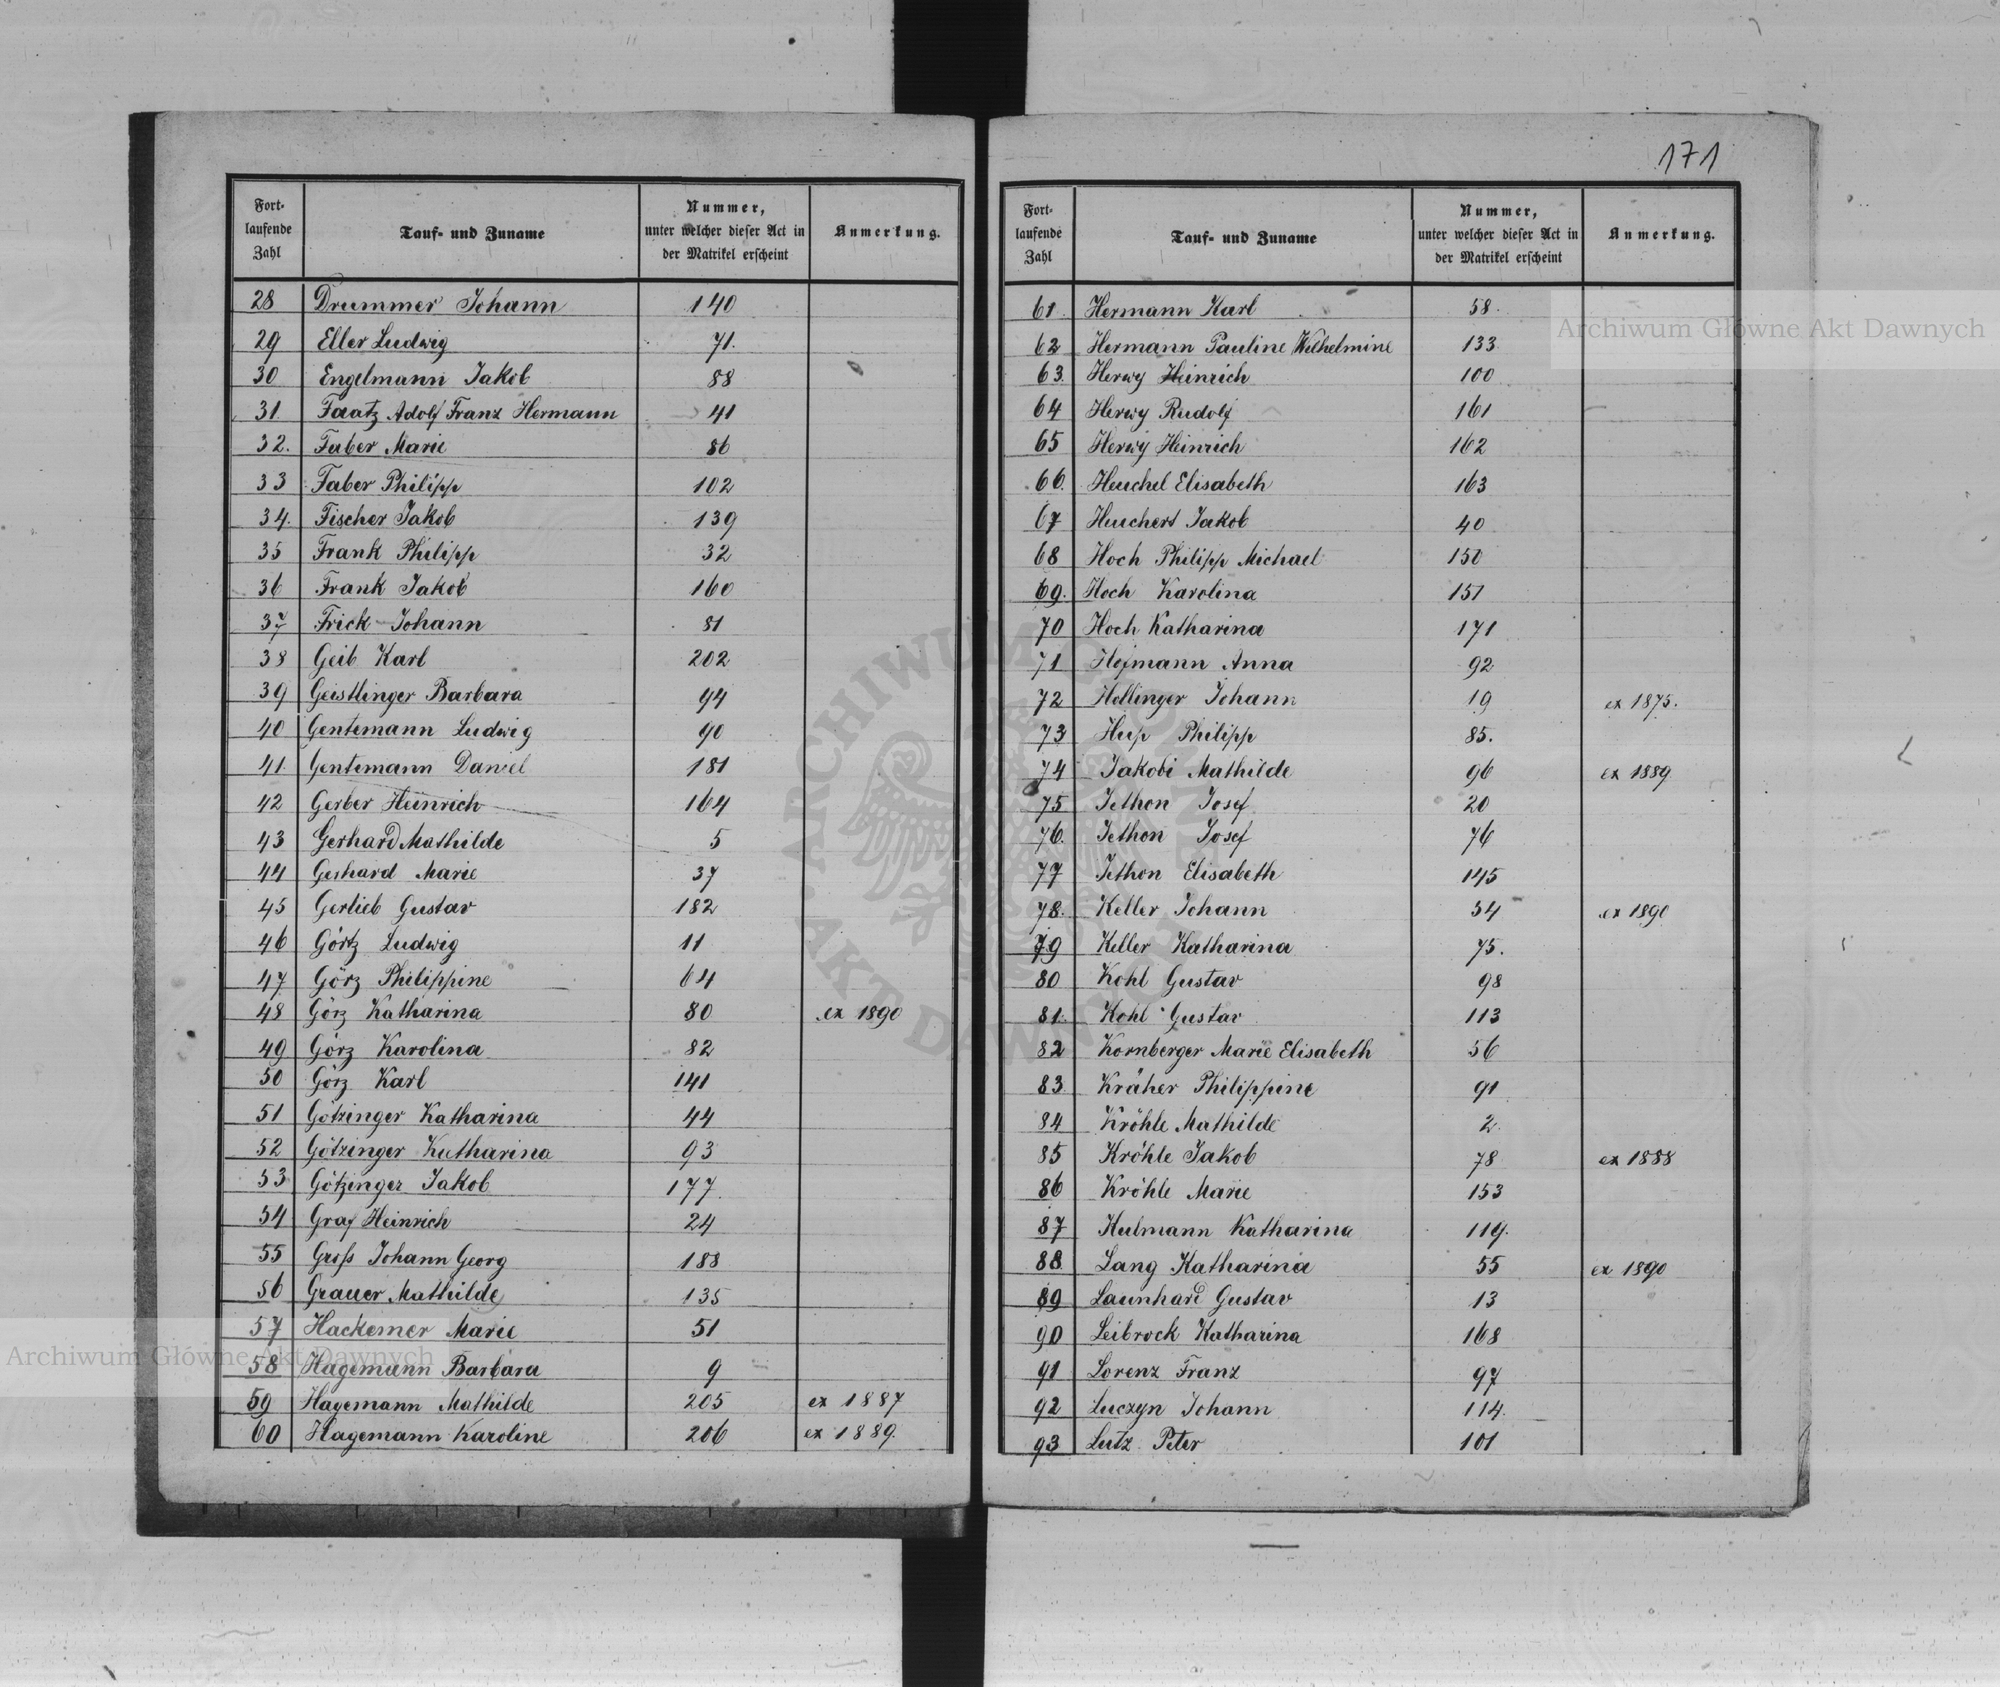 171
Fort-
laufende
Zahl
Tauf- und Zuname
Nummer,
unter welcher dieser Act in
der Matrikel erscheint
Anmerkung.
28 Drummer Johann 140
29 Eller Ludwig 71.
30 Engelmann Jakob 88
31. Faatz Adolf Franz Hermann 41
32. Faber Marie 86
33 Faber Philipp 102
34. Fischer Jakob 139
35 Frank Philipp 32
36 Frank Jakob 160
37 Frick Johann 81
38 Geib Karl 202
39 Geistlinger Barbara 94
40 Gentemann Ludwig 90
41. Gentemann Daniel 181
42 Gerber Heinrich 164
43 Gerhard Mathilde 5
44 Gerhard Marie 37
45 Gerlieb Gustav 182
46 Görtz Ludwig 11
47 Görz Philippine 64
48 Görz Katharina 80 ex 1890
49 Görz Karolina 82
50 Görz Karl 141
51 Götzinger Katharina 44
52 Götzinger Katharina 93
53 Götzinger Jakob 177.
54 Graf Heinrich 24
55 Groß Johann Georg 188
56 Grauer Mathilde 135
57 Hackemer Marie 51
58 Hagemann Barbara 9
59 Hagemann Mathilde 205 ex 1887
60 Hagemann Karoline 206 ex 1889.
Fort-
laufende
Zahl
Tauf- und Zuname
Nummer,
unter welcher dieser Act in
der Matrikel erscheint
Anmerkung.
61 Hermann Karl 58.
62 Hermann Pauline Wilhelmine 133
63. Herwy Heinrich 100
64 Herwy Rudolf 161
65 Herwy Heinrich 162
66. Heuchel Elisabeth 163
67 Heuchert Jakob 40
68 Hoch Philipp Michael 150
69. Hoch Karolina 151
70 Hoch Katharina 171
71 Hofmann Anna 92
72 Hollinger Johann 19 ex 1875.
73 Philipp 85.
74 Jakobi Mathilde 96 ex 1889
75 Jethon Josef 20
76. Jethon Josef 76
77 Jethon Elisabeth 145
78. Keller Johann 54 ex 1890
79 Keller Katharina 75.
80 Kohl Gustav 98
81. Kohl Gustav 113
82 Kornberger Marie Elisabeth 56
83. Kräher Philippine 91
84 Kröhle Mathilde 2.
85 Kröhle Jakob 78 ex 1888
86 Kröhle Marie 153
87 Kulmann Katharina 119.
88 Lang Katharina 55 ex 1890
89 Launhard Gustav 13
90 Leibrock Katharina 168
91 Lorenz Franz 97
92 Luczyn Johann 114.
93 Lutz Peter 101
Archiwum Główne Akt Dawnych
Archiwum Główne Akt Dawnych
ARCHIWUM GŁÓWNE AKT DAWNYCH